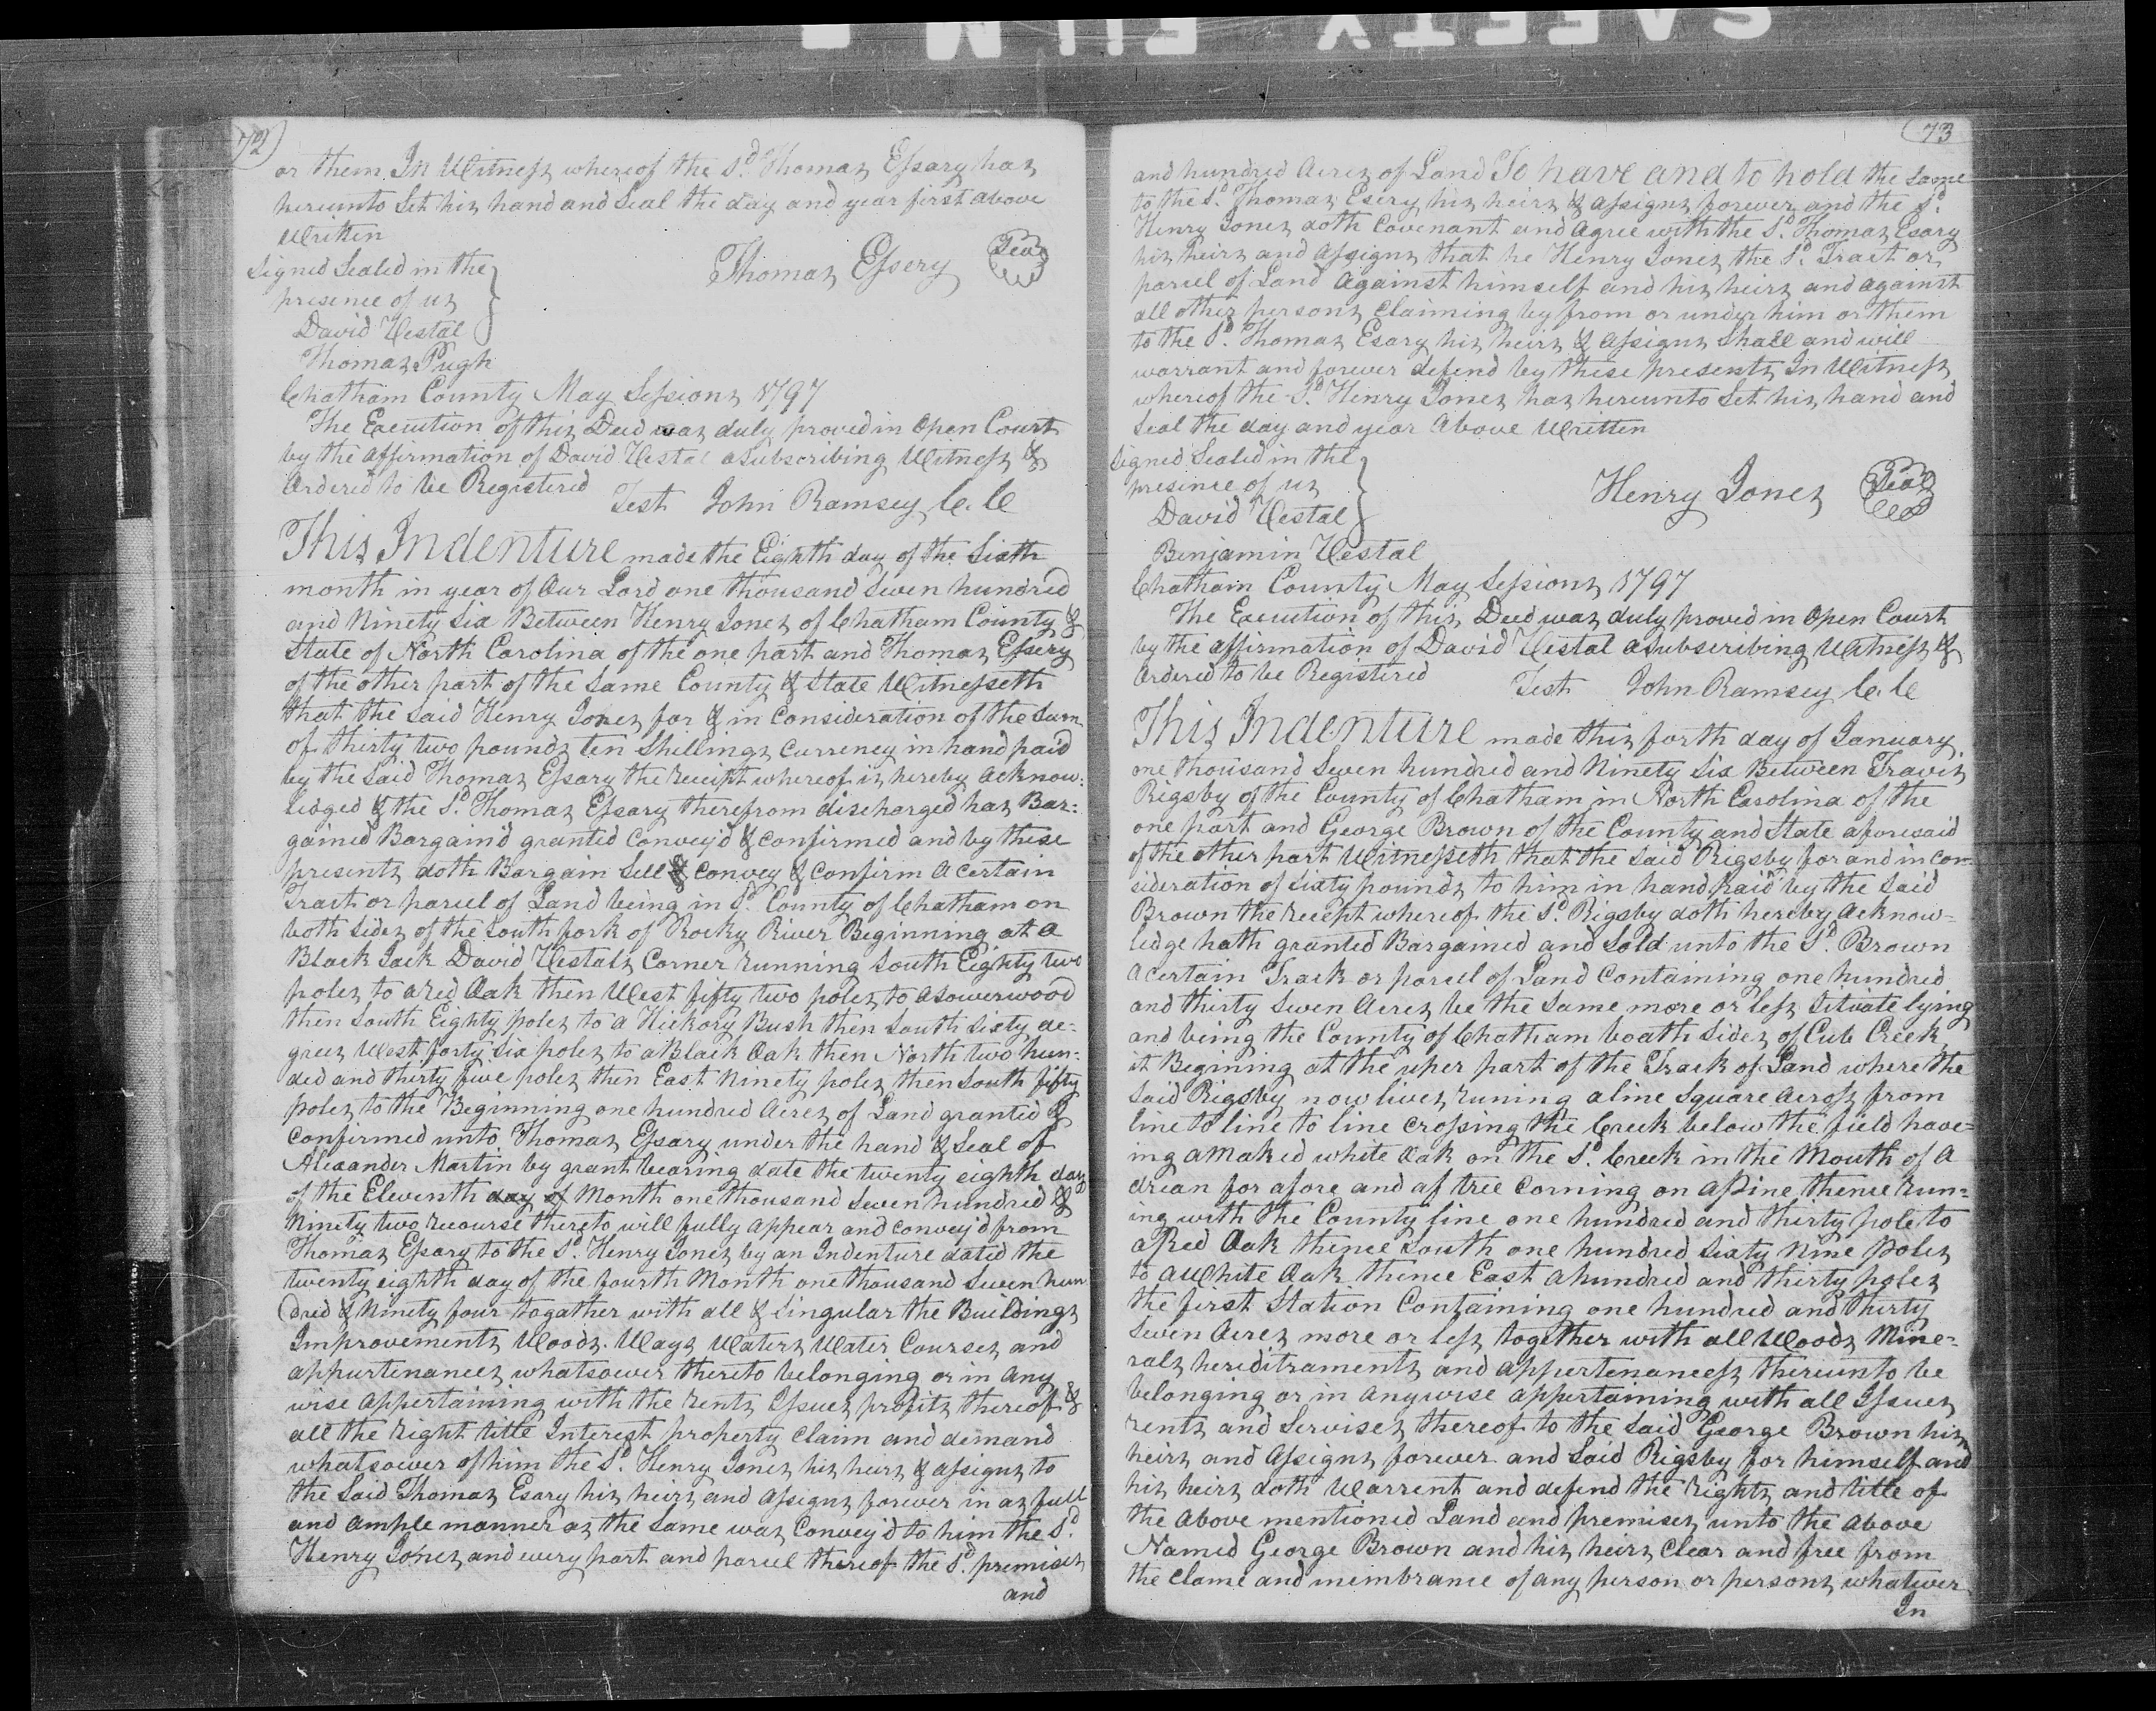 72
or them In Witness whereof the Sd. Thomas Essary has
hereunto Set his hand and Seal the day and year first above
Written
Signed Sealed in the
presence of us
Thomas Essery Seal
David Vestal
Thomas Pugh
Chatham County May Sessions 1797
The Execution of this Deed was duly proved in Open Court
by the affirmation of David Vestal a Subscribing Witness &
Ordered to be Registered
Test John Ramsey C. C
This Indenture made the Eighth day of the Sixth
month in year of Our Lord one thousand Seven hundred
and Ninety Six Between Henry Jones of Chatham County &
State of North Carolina of the one part and Thomas Essery
of the other part of the Same County & State Witnesseth
that the Said Henry Jones for & in Consideration of the Sum
of thirty two pounds ten Shillings Currency in hand paid
by the Said Thomas Essary the receipt whereof is hereby acknow:
ledged & the Sd. Thomas Essary therefrom discharged has Bar:
gained Bargain'd granted Convey'd & Confirmed and by these
presents doth Bargain Sell & Convey & Confirm a Certain
Tract or parcel of Land being in Sd. County of Chatham on
both Sides of the South fork of Rocky River Beginning at a
Black Jack David Vestals Corner running South Eighty two
poles to a red Oak then West fifty two poles to a Sowerwood
then South Eighty poles to a Hickory Bush then South Sixty de-
grees West forty Six poles to a Black Oak then North two hun:
ded and thirty five poles then East Ninety poles then South fifty
poles to the Beginning one hundred Acres of Land granted &
Confirmed unto Thomas Essary under the hand & Seal of
Alexander Martin by grant bearing date the twenty eighth day
of the Eleventh day of Month one thousand Seven hundred &
Ninety two recourse thereto will fully appear and convey'd from
Thomas Essary to the Sd. Henry Jones by an Indenture dated the
twenty eighth day of the fourth Month one thousand Seven hun
dred & Ninety four togather with all & Singular the Buildings
Improvements Woods. Ways Waters Water Courses and
appurtenances whatsoever thereto belonging or in any
wise Appertaining with the rents Issues profits thereof &
all the right title Interest property Claim and demand
whatsoever of him the Sd. Henry Jones his heirs & assigns to
the Said Thomas Esary his heirs and Assigns forever in as full
and Ample manner as the Same was Convey'd to him the Sd.
Henry Jones and every part and parcel thereof the Sd. premises
and
73
and hundred Acres of Land To have and to hold the Same
to the Sd. Thomas Esery his heirs & Assigns forever and the Sd.
Henry Jones doth Covenant and Agree with the Sd. Thomas Esary
his heirs and Assigns that he Henry Jones the Sd. Tract or
parcel of Land Against himself and his heirs and against
all other persons Claiming by from or under him or them
to the Sd. Thomas Esary his heirs & Assigns Shall and will
warrant and forever defend by these presents In Witness
whereof the Sd. Henry Jones has hereunto Set his hand and
Seal the day and year Above Written
Signed Sealed in the
presence of us
Henry Jones Seal
David Vestal
Benjamin Vestal
Chatham County May Sessions 1797
The Execution of this Deed was duly proved in Open Court
by the affirmation of David Vestal a Subscribing Witness &
Ordered to be Registered
Test John Ramsey C. C
This Indenture made this forth day of January
one thousand Seven hundred and Ninety Six Between Travis
Rigsby of the County of Chatham in North Carolina of the
one part and George Brown of the County and State aforesaid
of the other part Witnesseth that the Said Rigsby for and in Con-
sideration of Sixty pounds to him in hand paid by the Said
Brown the receipt whereof the Sd. Rigsby doth hereby Acknow-
ledge hath granted Bargained and Sold unto the Sd. Brown
a Certain Track or parcel of Land Containing one hundred
and thirty Seven Acres be the Same more or less Situate lying
and being the County of Chatham boath Sides of Cub Creek
it Begining at the uper part of the Track of Land where the
Said Rigsby now lives runing a line Square Across from
line to line to line Crossing the Creek below the field have=
ing a Maked white Oak on the Sd. Creek in the Mouth of a
drean for afore and af tree Corning on a Pine thence run=
ing with the County line one hundred and thirty pole to
a Red Oak thence South one hundred Sixty Nine poles
to a White Oak thence East a hundred and thirty poles
the first Station Containing one hundred and thirty
Seven Acres more or less together with all Woods Mine-
rals hereditraments and appertenancess thereunto be
belonging or in Anywise appertaining with all Issues
rents and Servises thereof to the Said George Brown his
heirs and Assigns forever and Said Rigsby for himself and
his heirs doth Warrent and defend the rights and title of
the Above mentioned Land and premises unto the above
Named George Brown and his heirs Clear and free from
the Clame and membrance of any person or persons whatever
In